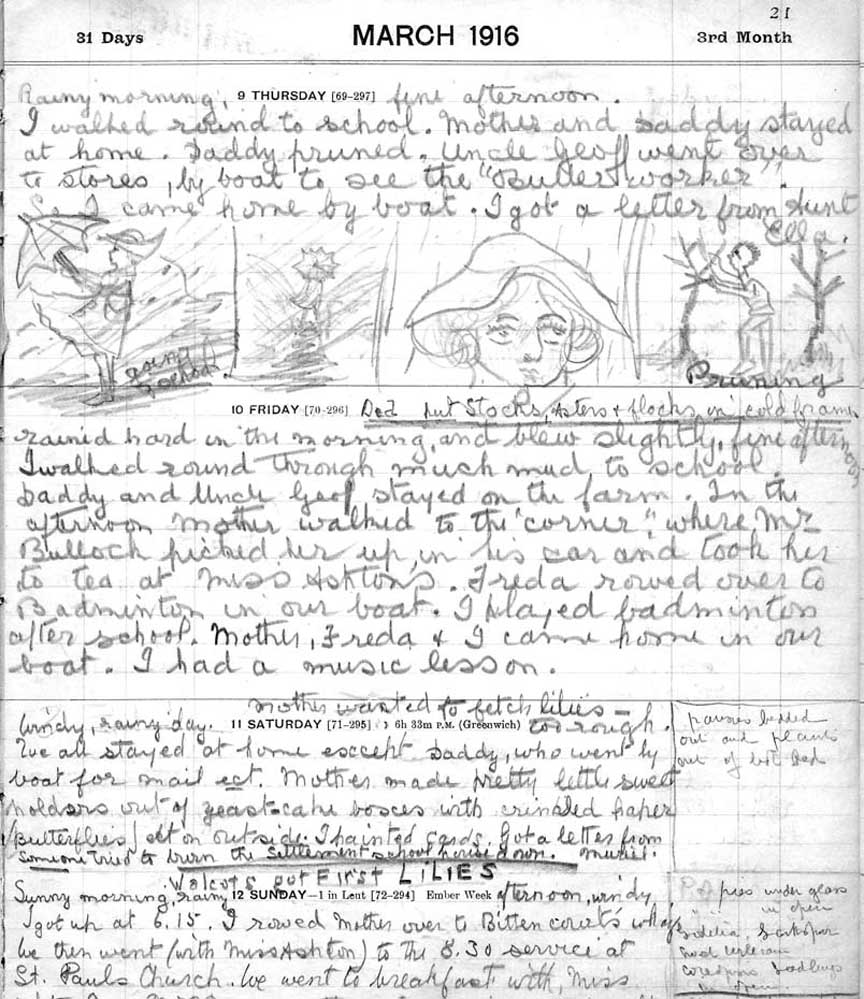 21
31 Days MARCH 1916 3rd Month
Rainy morning, 9 THURSDAY [69-297] fine afternoon.
I walked round to school. Mother and Daddy stayed
at home. Daddy pruned. Uncle Geoff went over
to stores, by boat to see the "Butter worker".
So I came home by boat. I got a letter from Aunt
Ella.
going
school.
Pruning
10 FRIDAY [70-296] Dad put Stocks, Asters + flocks in cold frame
rained hard in the morning, and blew slightly, fine afternoon
I walked round through much mud to school.
Daddy and Uncle Geof stayed on the farm. In the
afternoon Mother walked to the "corner", where Mr
Bullock picked her up, in his car and took her
to tea at Miss Ashtons. Freda rowed over to
Badminton in our boat. I played badminton
after school. Mother, Freda & I came home in our
boat. I had a music lesson.
Mother wanted to fetch lilies -
Windy, rainy day. 11 SATURDAY [71-295] 6h 33m P.M. (Greenwich) too rough.
We all stayed at home except Daddy, who went by
boat for mail ect. Mother made pretty little sweet
holders out of yeast-cake boxes with crinkled paper
(Butterflies) set on outside. I painted cards. Got a letter from
someone tried to burn the Settlement school house down. Muriel.
pansies bedded
out and plants
out of hot bed
Walcots got FIRST LILIES
Sunny morning, rainy 12 SUNDAY—1 in Lent [72-294] Ember Week afternoon, windy,
I got up at 6.15. I rowed Mother over to Bittencourt's
We then went (with Miss Ashton) to the 8.30 service at
St. Pauls Church. We went to breakfast with, Miss
peas under glass
in open